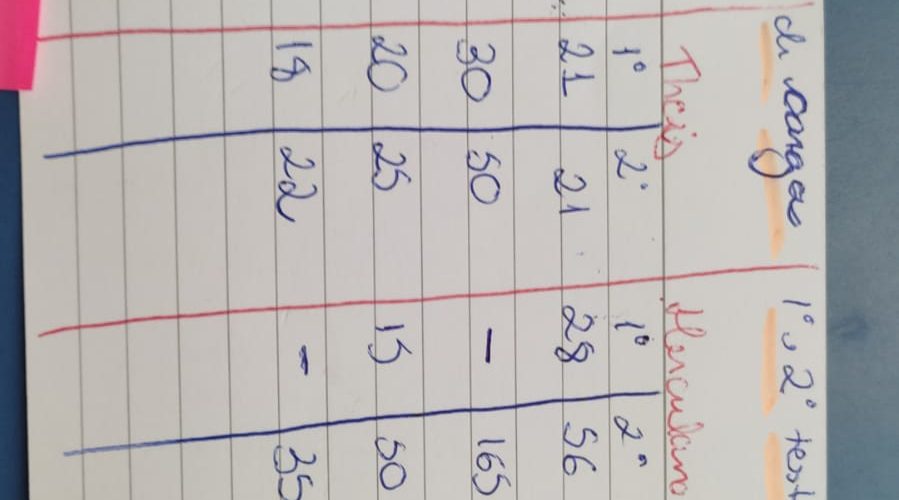 de carga 1º e 2º test
Thais Herculano
1º 2º 1º 2º
21 21 28 56
30 50 - 165
20 25 15 50
18 22 - 35